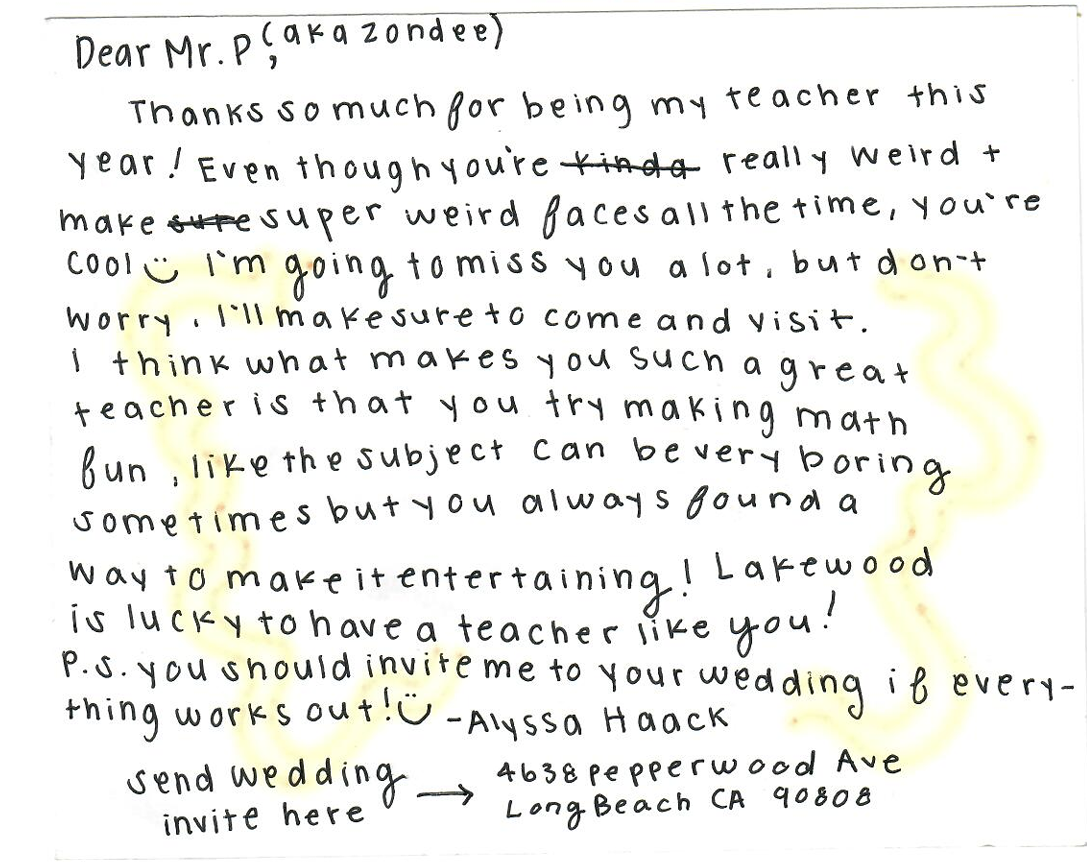 Dear Mr. P, (aka zondee)
Thanks so much for being my teacher this
year! Even though you're kinda really weird +
make sure super weird faces all the time, you're
cool I'm going to miss you alot, but don't
worry, I'll make sure to come and visit.
I think what makes you such a great
teacher is that you try making math
fun, like the subject can be very boring
sometimes but you always found a
way to make it entertaining! Lakewood
is lucky to have a teacher like you!
P.S. you should invite me to your wedding if every-
thing works out! -Alyssa Haack
send wedding → 4638 pepperwood Ave
invite here Long Beach CA 90808